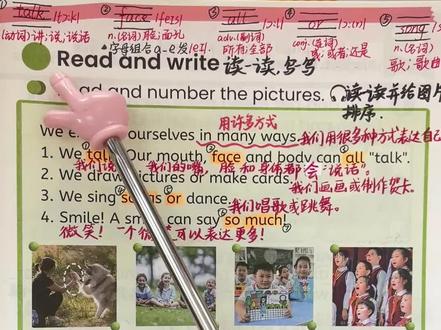 ① talk [tɔ:k] ② face [feis] ③ all [ɔ:l] ④ or [ɔ:(r)] ⑤ song
(动词)讲;说;说话 n.(名词)脸;面孔 adv.(副词) conj.(连词) n.(名词)
*字母组合a-e发[eɪ]. 所有;全部 或;或者;还是 歌;歌曲
Read and write 读一读,写写
and number the pictures. 读一读并给图片
排序.
用许多方式
We ourselves in many ways. 我们用很多种方式表达自己
1. We talk. Our mouth, face and body can all “talk”.
我们说 我们的嘴,脸和身体都会“说话”.
2. We draw pictures or make cards. 我们画画或制作贺卡.
3. We sing songs or dance. 我们唱歌或跳舞.
4. Smile! A smile can say so much!
微笑! 一个微笑可以表达更多!